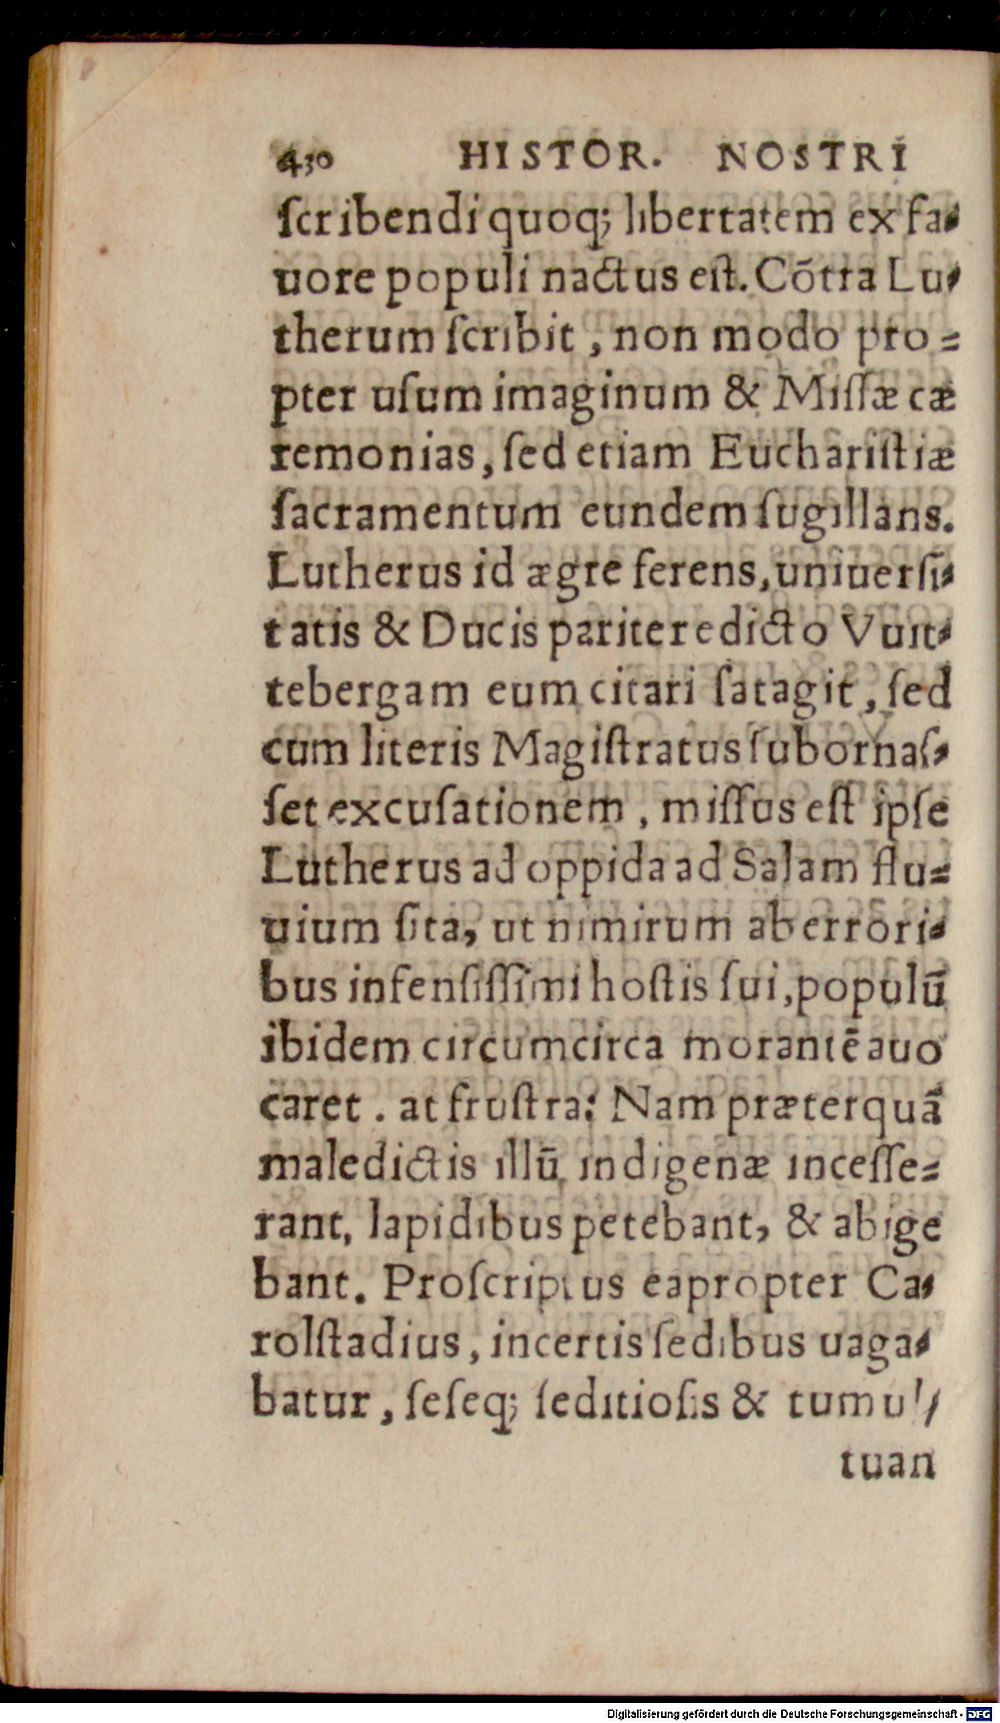 430 HISTOR. NOSTRI
ſcribendi quoq; libertatem ex fa-
uore populi nactus eſt. Cõtra Lu-
therum ſcribit, non modo pro-
pter uſum imaginum & Miſſæ cæ
remonias, ſed etiam Euchariſtiæ
ſacramentum eundem ſugillans.
Lutherus id ægre ferens, uniuerſi-
tatis & Ducis pariter edicto Vuit-
tebergam eum citari ſatagit, ſed
cum literis Magiſtratus ſubornaſ-
ſet excuſationem, miſſus eſt ipſe
Lutherus ad oppida ad Salam flu-
uium ſita, ut nimirum ab errori-
bus infenſiſſimi hoſtis ſui, populũ
ibidem circumcirca morantẽ auo
caret. at fruſtra: Nam præterquã
maledictis illũ indigenæ inceſſe-
rant, lapidibus petebant, & abige
bant. Proſcriptus eapropter Ca-
rolſtadius, incertis ſedibus uaga-
batur, ſeſeq; ſeditioſis & tumul-
tuan
Digitalisierung gefördert durch die Deutsche Forschungsgemeinschaft - DFG